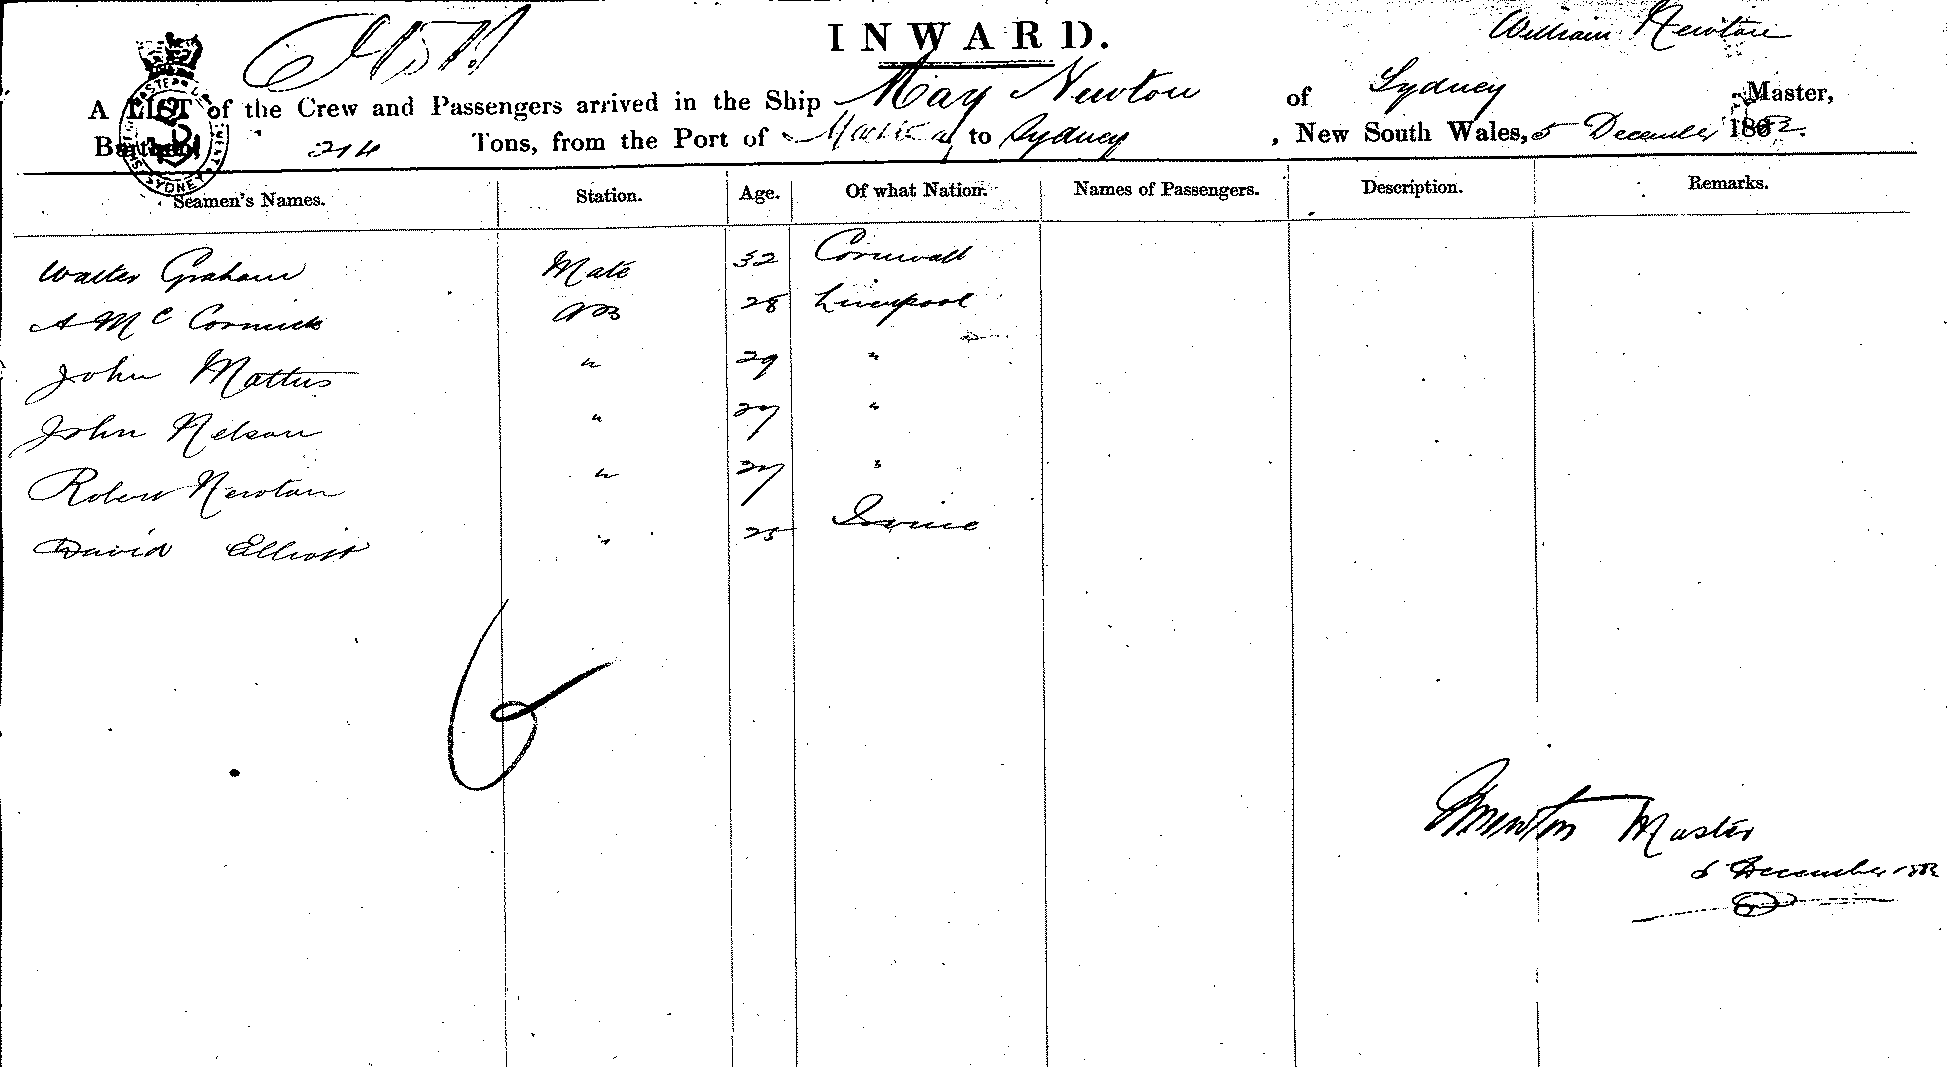 INWARD.
William Newton
A LIST of the Crew and Passengers arrived in the Ship May Newton of Sydney Master,
Burthen 214 Tons, from the Port of to Sydney, New South Wales, 5 December 1882.
Seamen's Names. Station. Age. Of what Nation. Names of Passengers. Description. Remarks.
Walter Graham Mate 32 Cornwall
A McCormick AB 28 Liverpool
John Mattus " 29 "
John Nelson " 27 "
Robert Newton " 27 "
David Elliott " 25 Irvine
6
WNewton Master
5 December 1882